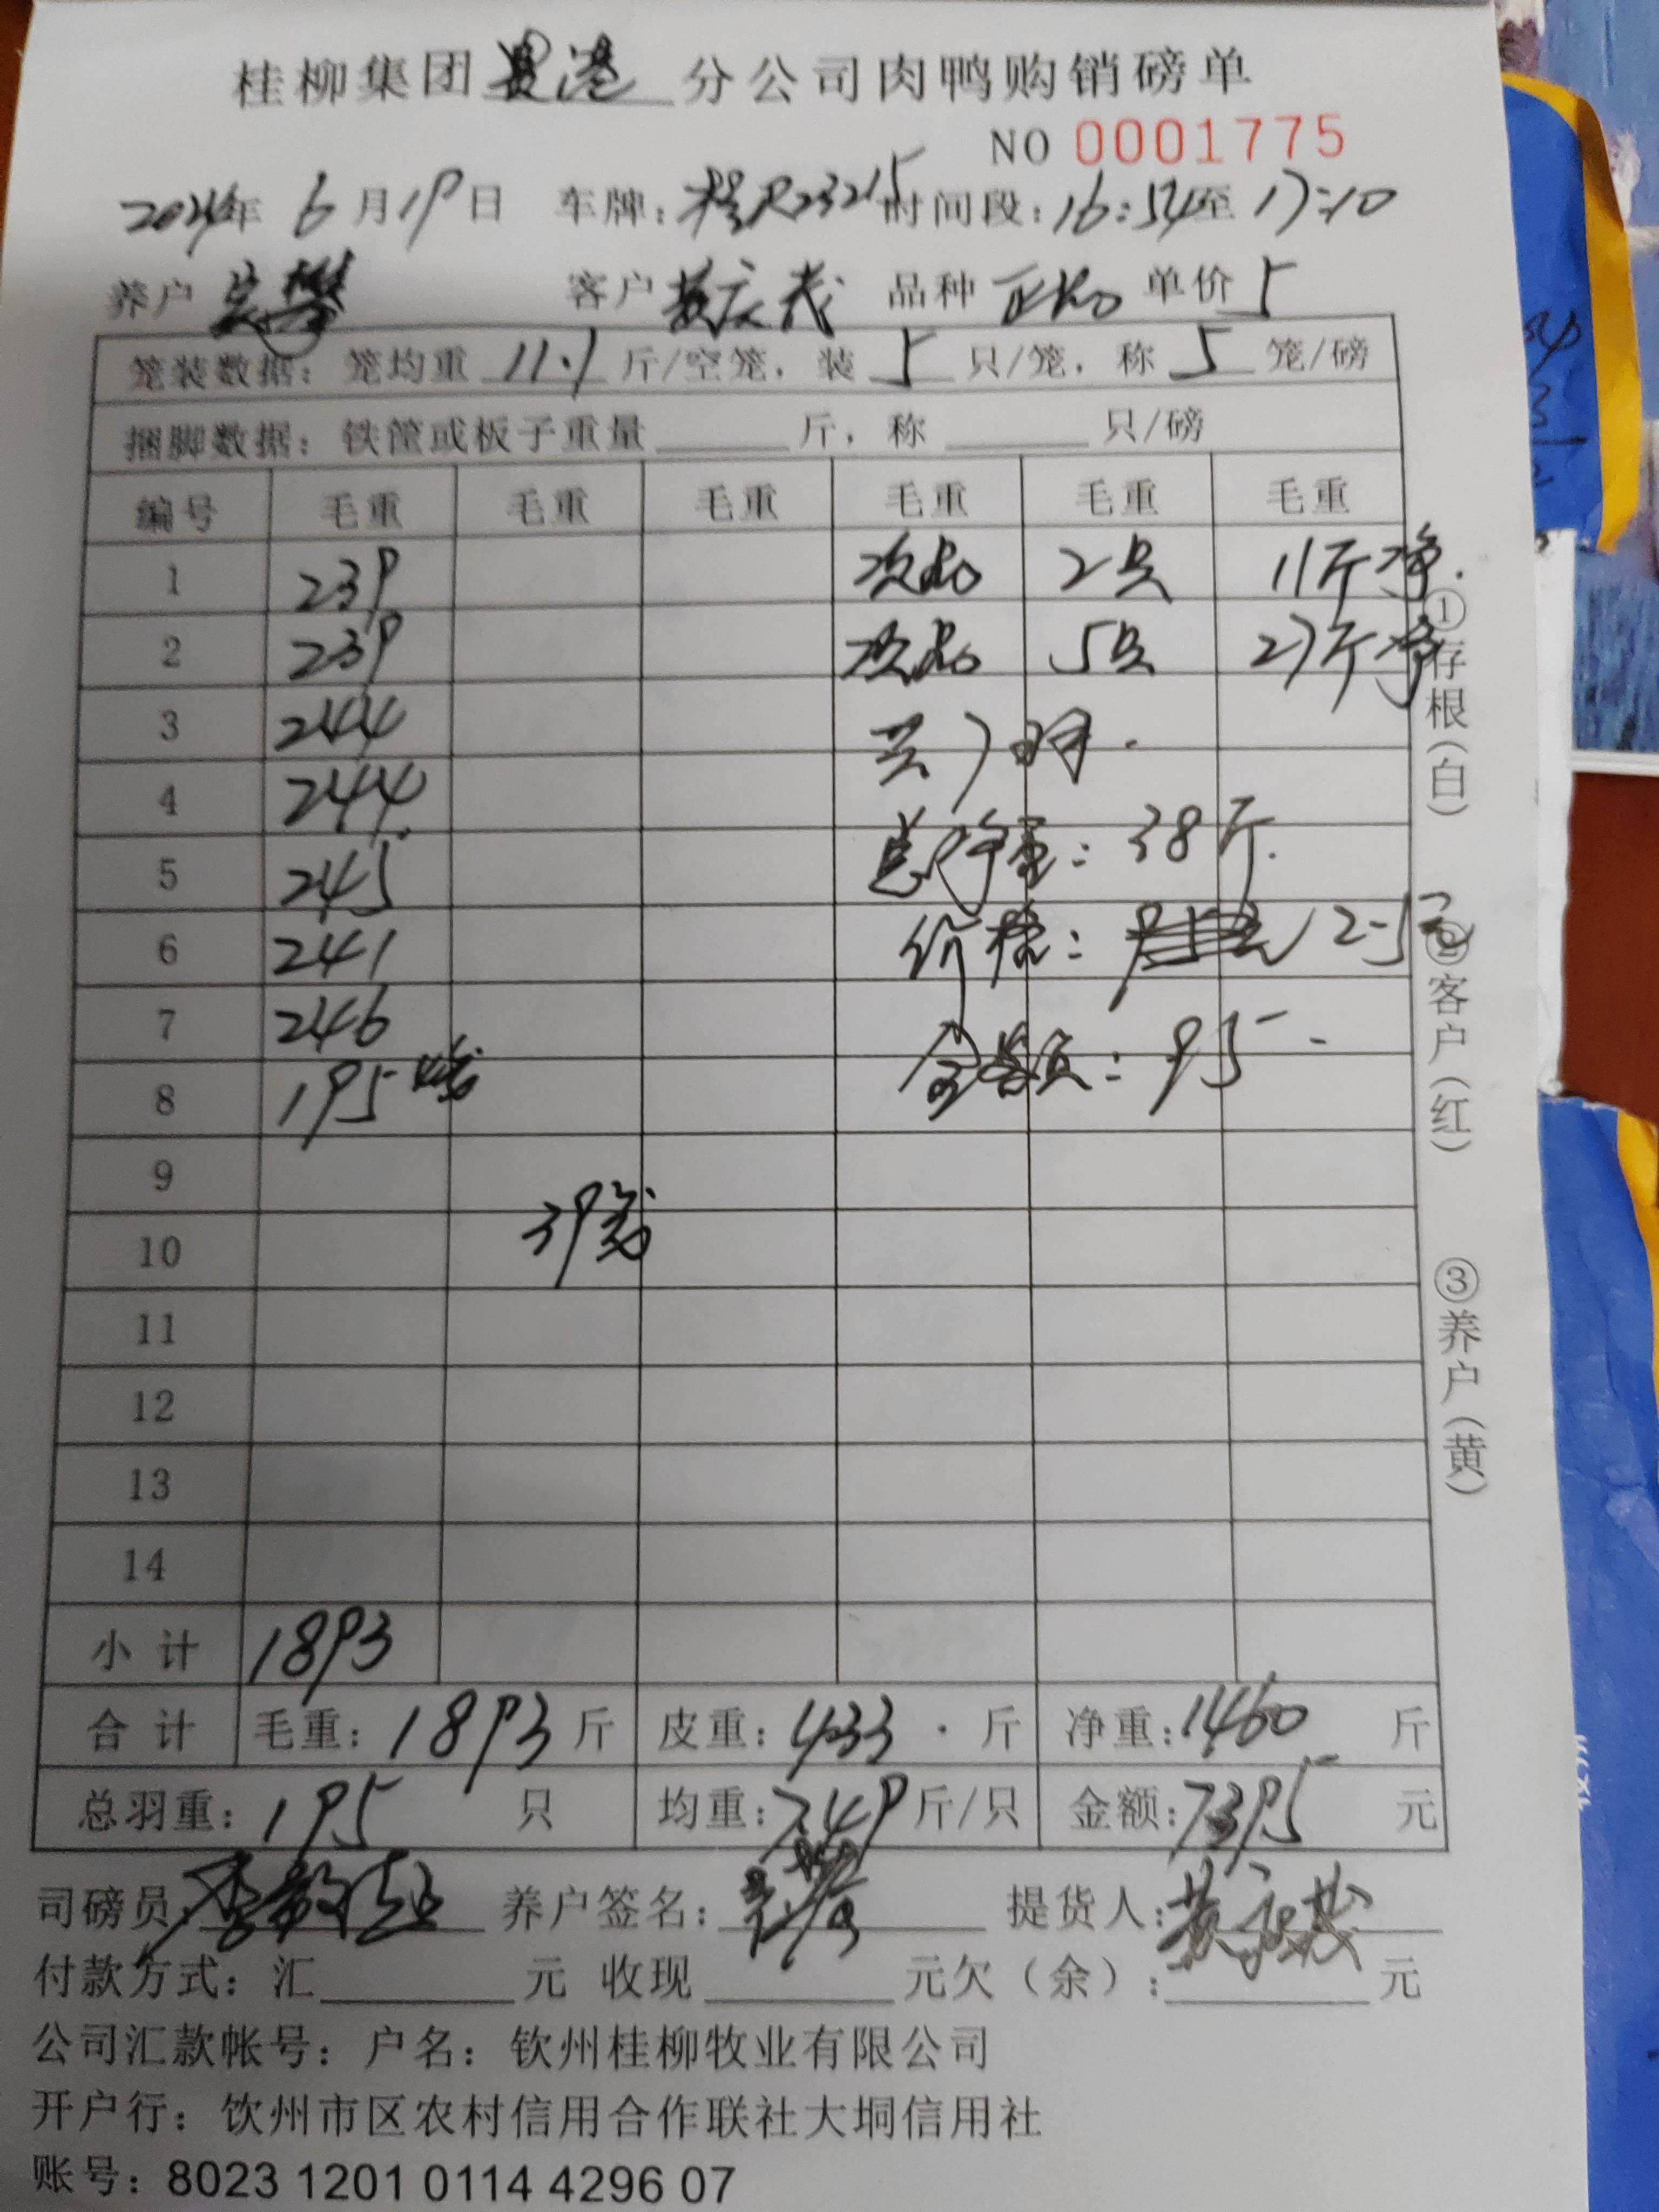 桂柳集团贵港分公司肉鸭购销磅单
NO 0001775
2024年 6月19日 车牌: 桂R23215 时间段: 16:54至17:10
养户 客户 黄庆茂 品种 正品 单价 5
笼装数据: 笼均重 11.1 斤/空笼, 装 5 只/笼, 称 5 笼/磅
捆脚数据: 铁筐或板子重量 斤, 称 只/磅
编号 毛重 毛重 毛重 毛重 毛重 毛重
1 239 次品 2只 11斤净.
2 239 次品 5只 27斤净
3 244 共7只.
4 244
5 245 总净重: 38斤.
6 241 价格: 2.5元
7 246
8 195 4笼 金额: 95
9
10 39笼
11
12
13
14
小计 1893
合计 毛重: 1893 斤 皮重: 433. 斤 净重: 1460 斤
总羽重: 195 只 均重: 7.49 斤/只 金额: 7395 元
司磅员: 养户签名: 提货人: 黄庆茂
付款方式: 汇 元 收现 元欠(余): 元
公司汇款帐号: 户名: 钦州桂柳牧业有限公司
开户行: 钦州市区农村信用合作联社大垌信用社
账号: 8023 1201 0114 4296 07
①存根(白)
②客户(红)
③养户(黄)